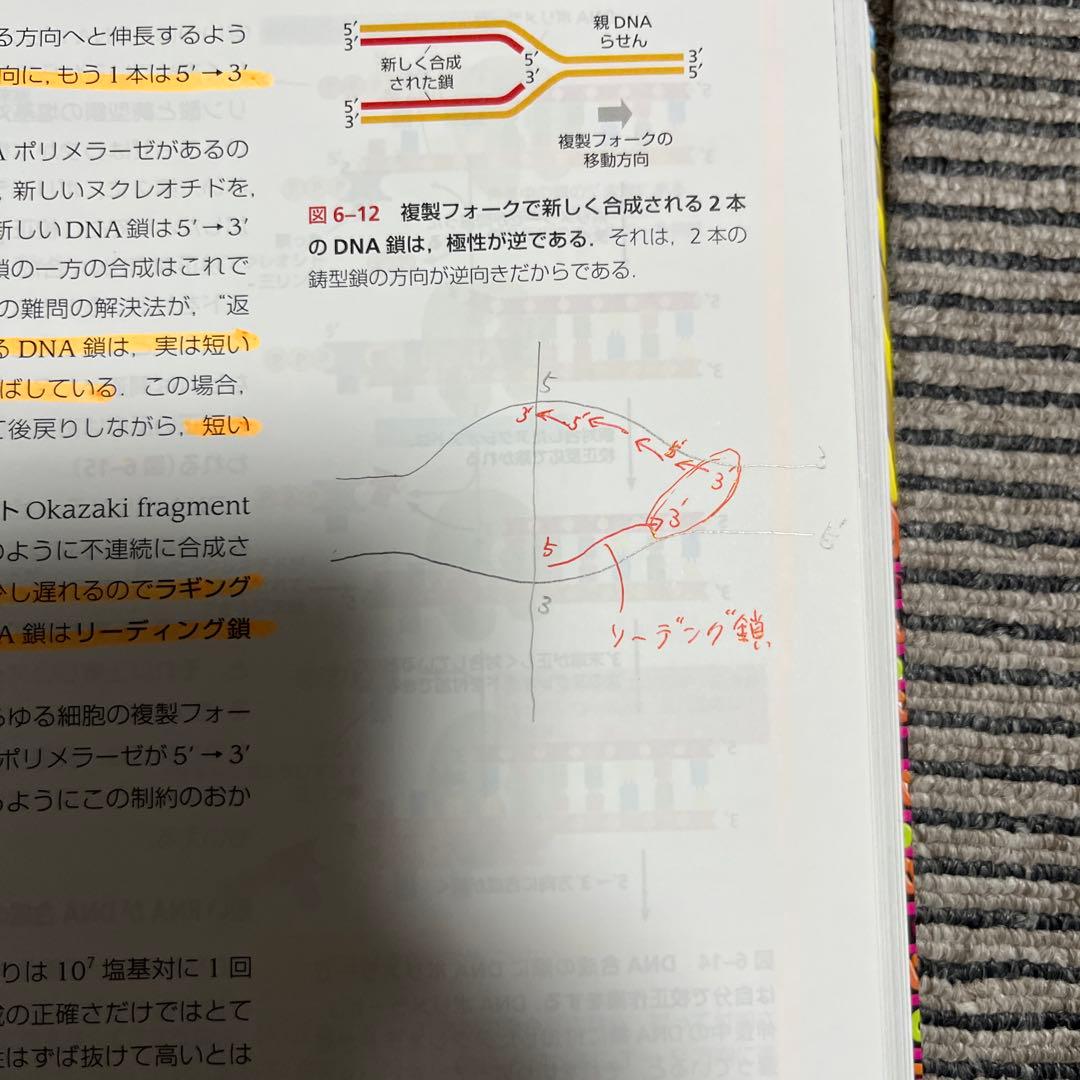 る方向へと伸長するよう
向に, もう1本は5′→3′
A ポリメラーゼがあるの
, 新しいヌクレオチドを,
新しいDNA鎖は5′→3′
鎖の一方の合成はこれで
の難問の解決法が, “返
る DNA 鎖は, 実は短い
ばしている. この場合,
て後戻りしながら, 短い
ト Okazaki fragment
のように不連続に合成さ
少し遅れるのでラギング
A 鎖はリーディング鎖
らゆる細胞の複製フォー
ポリメラーゼが5′→3′
るようにこの制約のおか
りは 10⁷ 塩基対に 1 回
の正確さだけではとて
性はずば抜けて高いとは
5′
3′
新しく合成
された鎖
5′
3′
5′
3′
親 DNA
らせん
3′
5′
複製フォークの
移動方向
図 6–12 複製フォークで新しく合成される 2 本
の DNA 鎖は, 極性が逆である. それは, 2 本の
鋳型鎖の方向が逆向きだからである.
5
3′
5′
5′
3′
3′
5
3
リーデング鎖